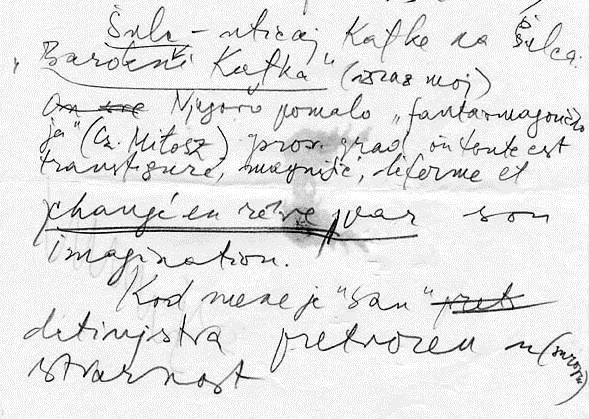 Šulc – uticaj Kafke na Šulca.
„Barokni Kafka" (izraz moj)
Njegovo pomalo „fantazmagorično
ja" (Cz. Miłosz) proz. grad, où tout est
transfiguré, magnifié, déformé et
changé en rêve par son
imagination.
Kod mene je "san"
detinjstva pretvoren u (surovu)
stvarnost